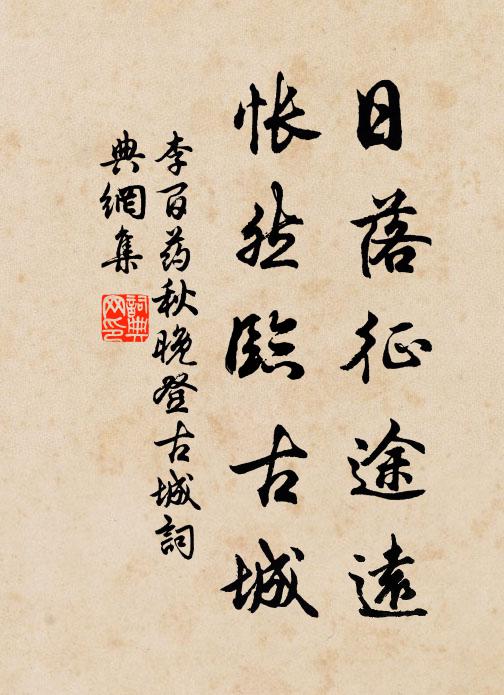 日落征途遠
悵然臨古城
李百药秋晚登古城詞
典網集
詞典網印